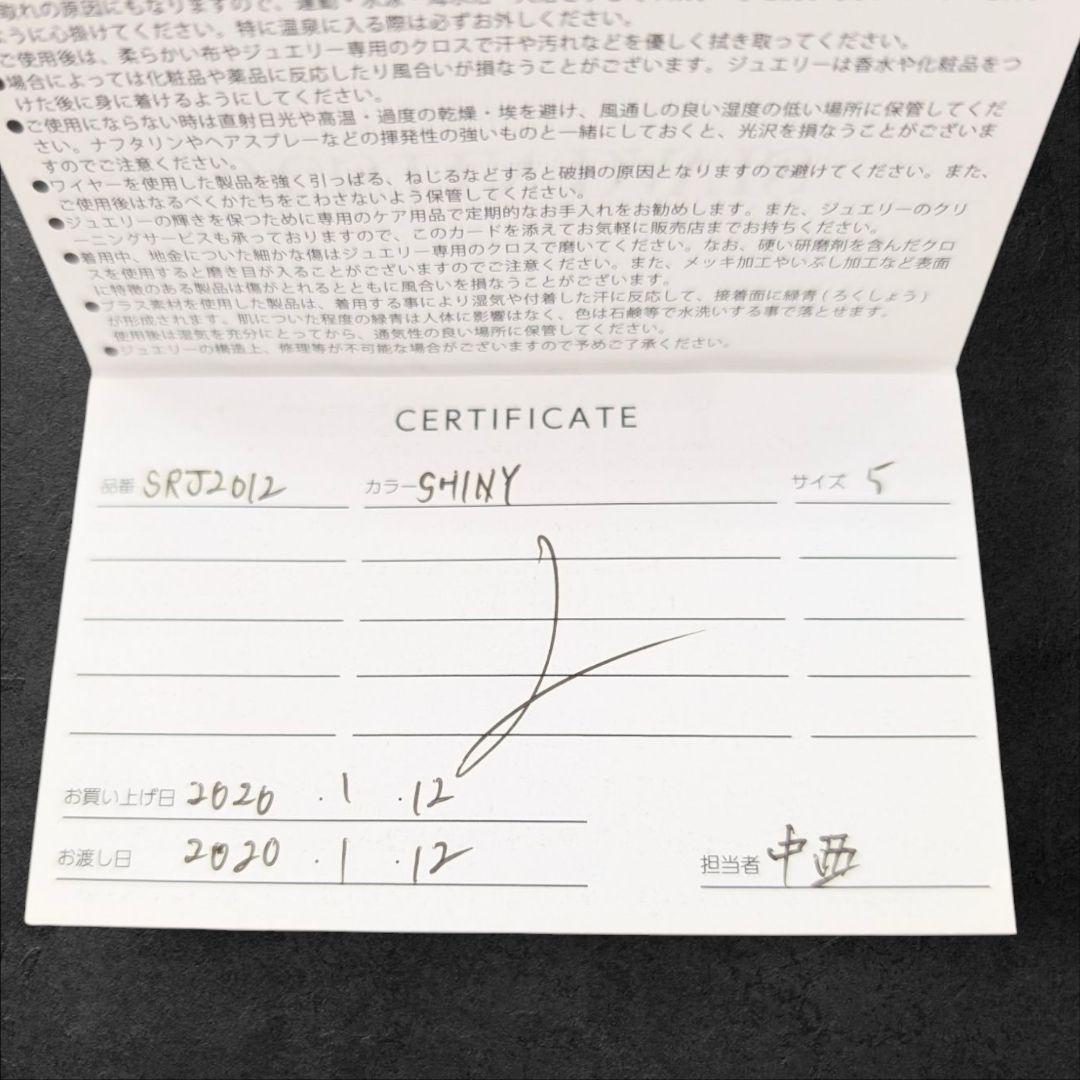 取れの原因にもなりますので、運動・水泳・
ように心掛けてください。特に温泉に入る際は必ずお外しください。
ご使用後は、柔らかい布やジュエリー専用のクロスで汗や汚れなどを優しく拭き取ってください。
●場合によっては化粧品や薬品に反応したり風合いが損なうことがございます。ジュエリーは香水や化粧品をつ
けた後に身に着けるようにしてください。
●ご使用にならない時は直射日光や高温・過度の乾燥・埃を避け、風通しの良い湿度の低い場所に保管してくだ
さい。ナフタリンやヘアスプレーなどの揮発性の強いものと一緒にしておくと、光沢を損なうことがございま
すのでご注意ください。
●ワイヤーを使用した製品を強く引っぱる、ねじるなどすると破損の原因となりますので避けてください。また、
ご使用後はなるべくかたちをこわさないよう保管してください。
●ジュエリーの輝きを保つために専用のケア用品で定期的なお手入れをお勧めします。また、ジュエリーのクリ
ーニングサービスも承っておりますので、このカードを添えてお気軽に販売店までお持ちください。
●着用中、地金についた細かな傷はジュエリー専用のクロスで磨いてください。なお、硬い研磨剤を含んだクロ
スを使用すると磨き目が入ることがございますのでご注意ください。また、メッキ加工やいぶし加工など表面
に特徴のある製品は傷がとれるとともに風合いを損なうことがございます。
●ブラス素材を使用した製品は、着用する事により湿気や付着した汗に反応して、接着面に緑青(ろくしょう)
が形成されます。肌についた程度の緑青は人体に影響はなく、色は石鹸等で水洗いする事で落とせます。
使用後は湿気を充分にとってから、通気性の良い場所に保管してください。
●ジュエリーの構造上、修理等が不可能な場合がございますので予めご了承ください。
CERTIFICATE
品番 SRJ2012 カラー SHINY サイズ 5
お買い上げ日 2020 . 1 . 12
お渡し日 2020 . 1 . 12 担当者 中西